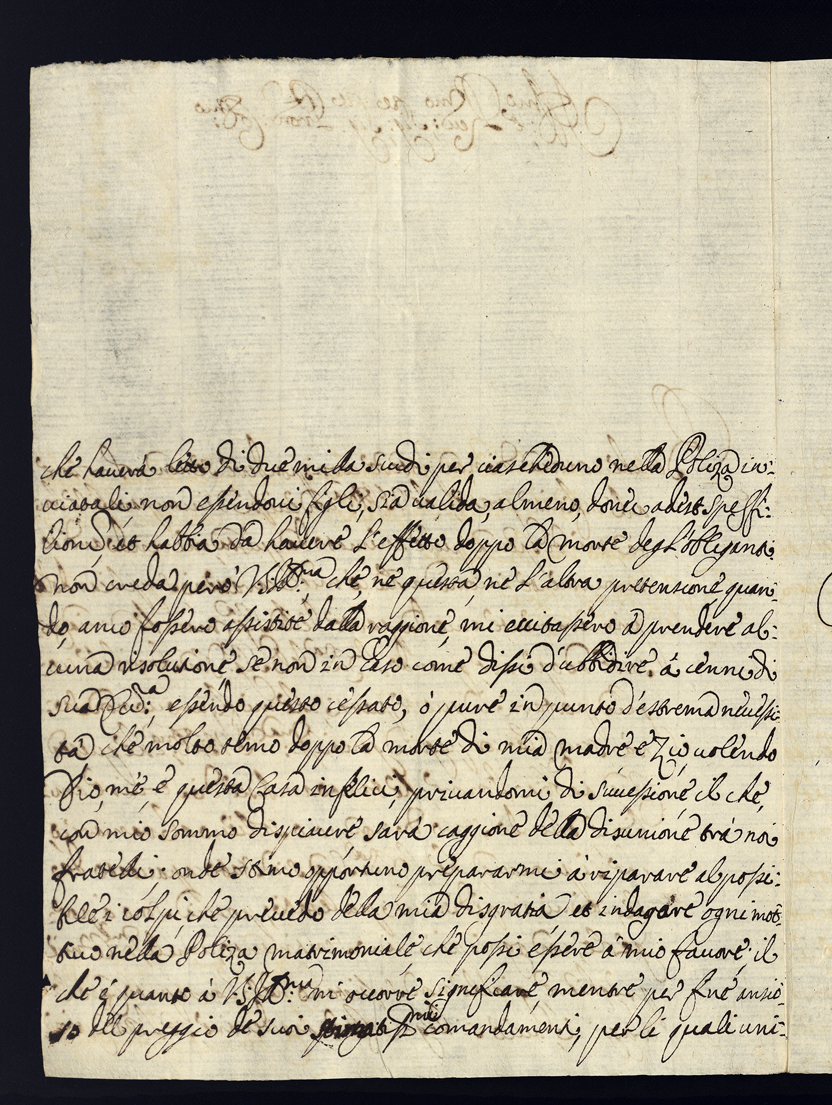 che haverà letto di due mila scudi per ciascheduno nella Poliza in-
viatali non essendovi figli, sia valida, almeno, donec adest spessi-
et habbia da havere l'effetto doppo la morte degl'obliganti
non creda però V.S. Ill.ma che, ne questa, ne l'altra pretensione quan-
do anco fossero assistite dalla raggione, mi eccitassero à prendere al-
cuna risolutione se non in caso come dissi d'ubbidire à cenni di
sua essendo questo cessato, ò pure in punto d'estrema necessi-
tà che molto temo doppo la morte di mia madre e Zio, volendo
Dio, me e questa Casa infelici, privandomi di successione il che
con mio sommo dispiacere sarà caggione della disunione trà noi
fratelli: onde stimo opportuno prepararmi à riparare al possi-
bile i colpi che prevedo della mia disgratia et indagare ogni mot-
tivo nella Poliza matrimoniale che possi essere à mio favore; il
che è quanto à V.S. Ill.ma mi occorre significare, mentre per fine ansio-
so del preggio de suoi comandamenti, per li quali uni-